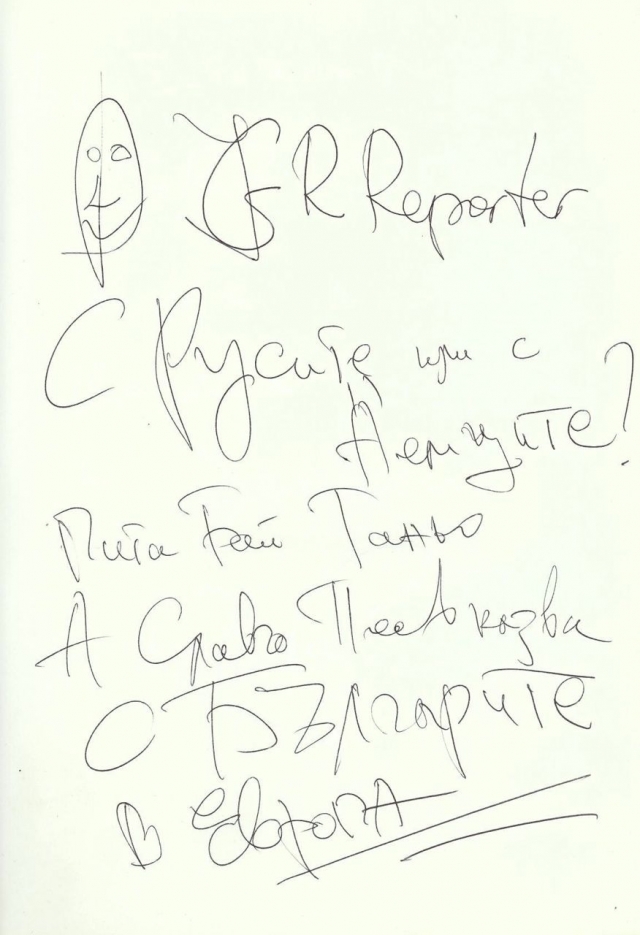 GR Reporter
С Русите или с
Немците?
Пита Бай Таньо
А Славчо Пеев казва
С Българите
в Европа